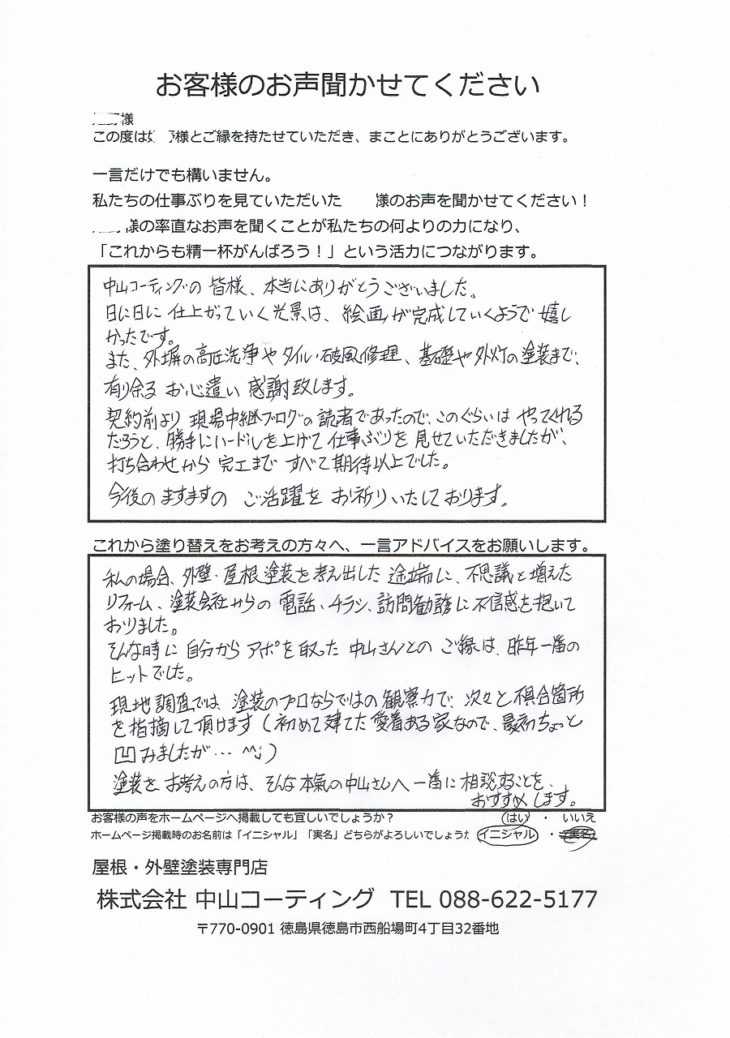 お客様のお声聞かせてください
様
この度は 様とご縁を持たせていただき、まことにありがとうございます。
一言だけでも構いません。
私たちの仕事ぶりを見ていただいた 様のお声を聞かせてください！
様の率直なお声を聞くことが私たちの何よりの力になり、
「これからも精一杯がんばろう！」という活力につながります。
中山コーティングの皆様、本当にありがとうございました。
日に日に仕上がっていく光景は、絵画が完成していくようで嬉し
かったです。
また、外塀の高圧洗浄やタイル・破風修理、基礎や外灯の塗装まで、
有り余るお心遣い感謝致します。
契約前より現場中継ブログの読者であったので、このぐらいはやってくれる
だろうと、勝手にハードルを上げて仕事ぶりを見せていただきましたが、
打ち合わせから完工まですべて期待以上でした。
今後のますますのご活躍をお祈りいたしております。
これから塗り替えをお考えの方々へ、一言アドバイスをお願いします。
私の場合、外壁・屋根塗装を考え出した途端に、不思議と増えた
リフォーム、塗装会社からの電話、チラシ、訪問勧誘に不信感を抱いて
おりました。
そんな時に自分からアポを取った中山さんとのご縁は、昨年一番の
ヒットでした。
現地調査では、塗装のプロならではの観察力で、次々と不具合箇所
を指摘して頂けます(初めて建てた愛着ある家なので、最初ちょっと
凹みましたが… ^^;)
塗装をお考えの方は、そんな本気の中山さんへ一番に相談することを、
おすすめします。
お客様の声をホームページへ掲載しても宜しいでしょうか？ はい ・ いいえ
ホームページ掲載時のお名前は「イニシャル」「実名」どちらがよろしいでしょうか イニシャル ・ 実名
屋根・外壁塗装専門店
株式会社 中山コーティング TEL 088-622-5177
〒770-0901 徳島県徳島市西船場町4丁目32番地